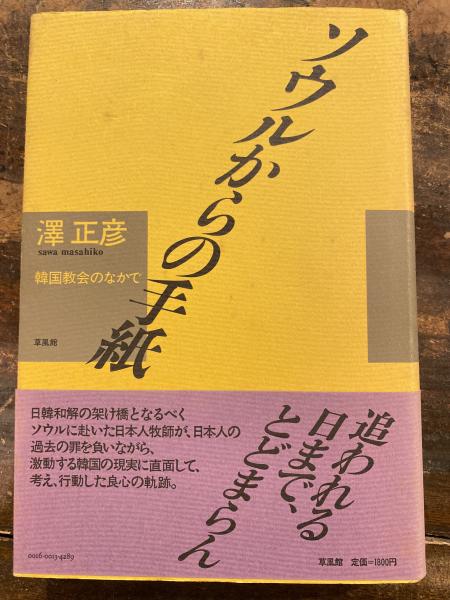 ソウルからの手紙
澤 正彦
sawa masahiko
韓国教会のなかで
草風館
追われる
日まで、
とどまらん
日韓和解の架け橋となるべく
ソウルに赴いた日本人牧師が、日本人の
過去の罪を負いながら、
激動する韓国の現実に直面して、
考え、行動した良心の軌跡。
0016-0013-4289
草風館 定価=1800円